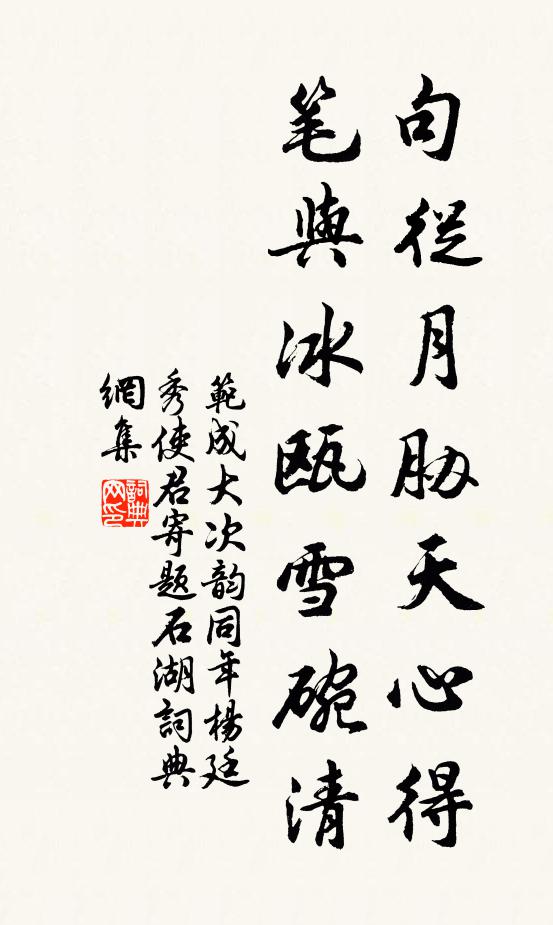 句從月胁天心得
笔與冰瓯雪碗清
範成大次韵同年楊廷
秀使君寄題石湖詞典
網集
詞典
网印